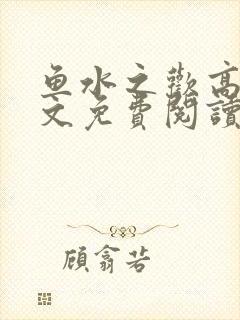 鱼水之歡高
文免費閱讀
顧翕若